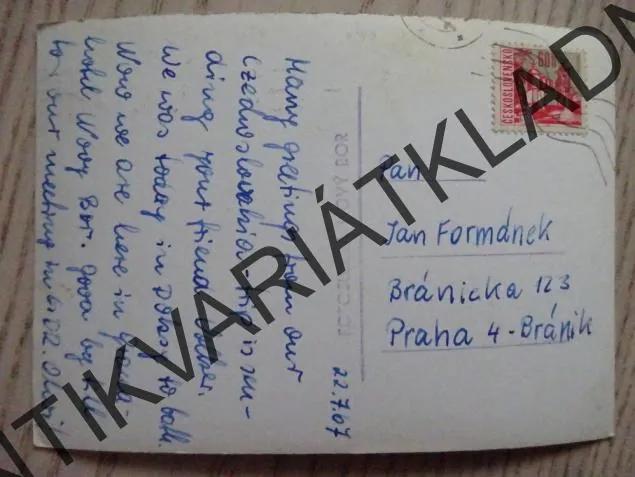 Many greetings from our
Czechoslovakia trip is sen-
ding your friend
We was today in to bath.
Now we are here in
hotel Nový Bor. Good by till
to our meeting in
22.7.67
FOTO NOVÝ BOR
ČESKOSLOVENSKO
60
Pan
Jan Formánek
Bránicka 123
Praha 4 - Bráník
ANTIKVARIÁTKLADNO